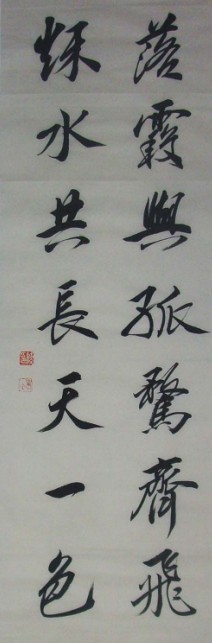 落霞與孤鶩齊飛
秌水共長天一色